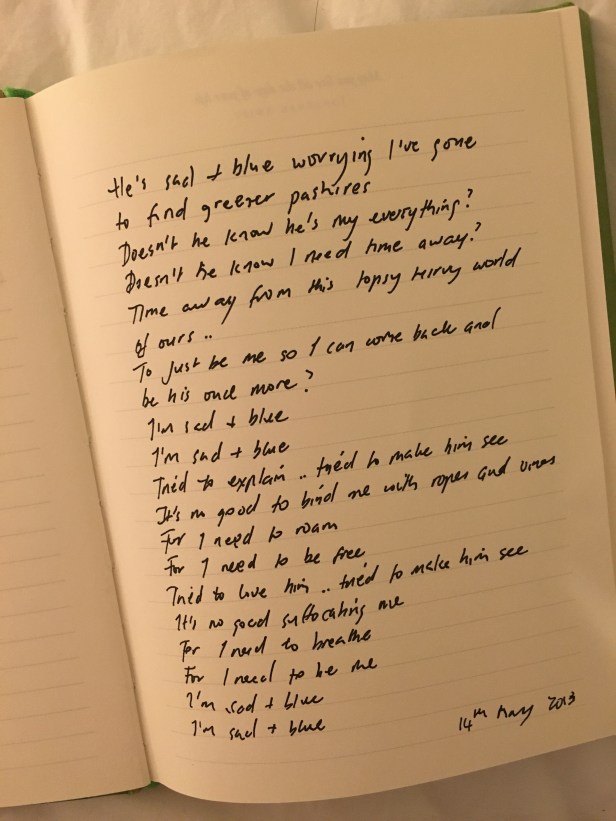 He's sad + blue worrying I've gone
to find greener pastures
Doesn't he know he's my everything?
Doesn't he know I need time away?
Time away from this topsy turvy world
of ours..
To just be me so I can come back and
be his once more?
I'm sad + blue
I'm sad + blue
Tried to explain .. tried to make him see
It's no good to bind me with ropes and vines
For I need to roam
For I need to be free
Tried to love him .. tried to make him see
It's no good suffocating me
For I need to breathe
For I need to be me
I'm sad + blue
I'm sad + blue
14th May 2013